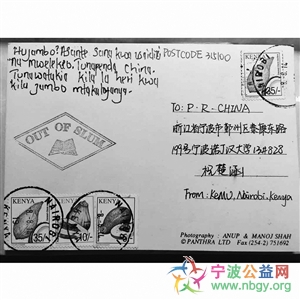 Hujambo? Asante sana kwa wandishi
POSTCODE 315100
na mwelekeo. Tunapenda China.
Tunawatakia kila la heri kwa
kila jambo mtakalofanya.
OUT OF SLUM
To: P·R·CHINA
浙江省宁波市鄞州区泰康东路
199号宁波诺丁汉大学 13#828
From: KeMU, Nairobi, Kenya
KENYA
35/-
NAIROBI
KENYA
35/-
KENYA
10/-
KENYA
Photography : ANUP & MANOJ SHAH
© PANTHRA LTD Fax (254-2) 751692
宁波公益网
www.nbgy.org